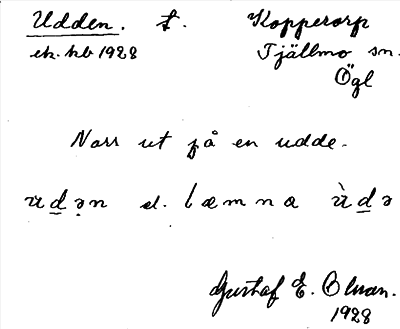 Udden. t. Kopperorp
ek. kb 1928 Tjällmo sn.
Ögl
Narr ut på en udde.
ùdən el. læmna ùdə
Gustaf E. Olsson.
1928